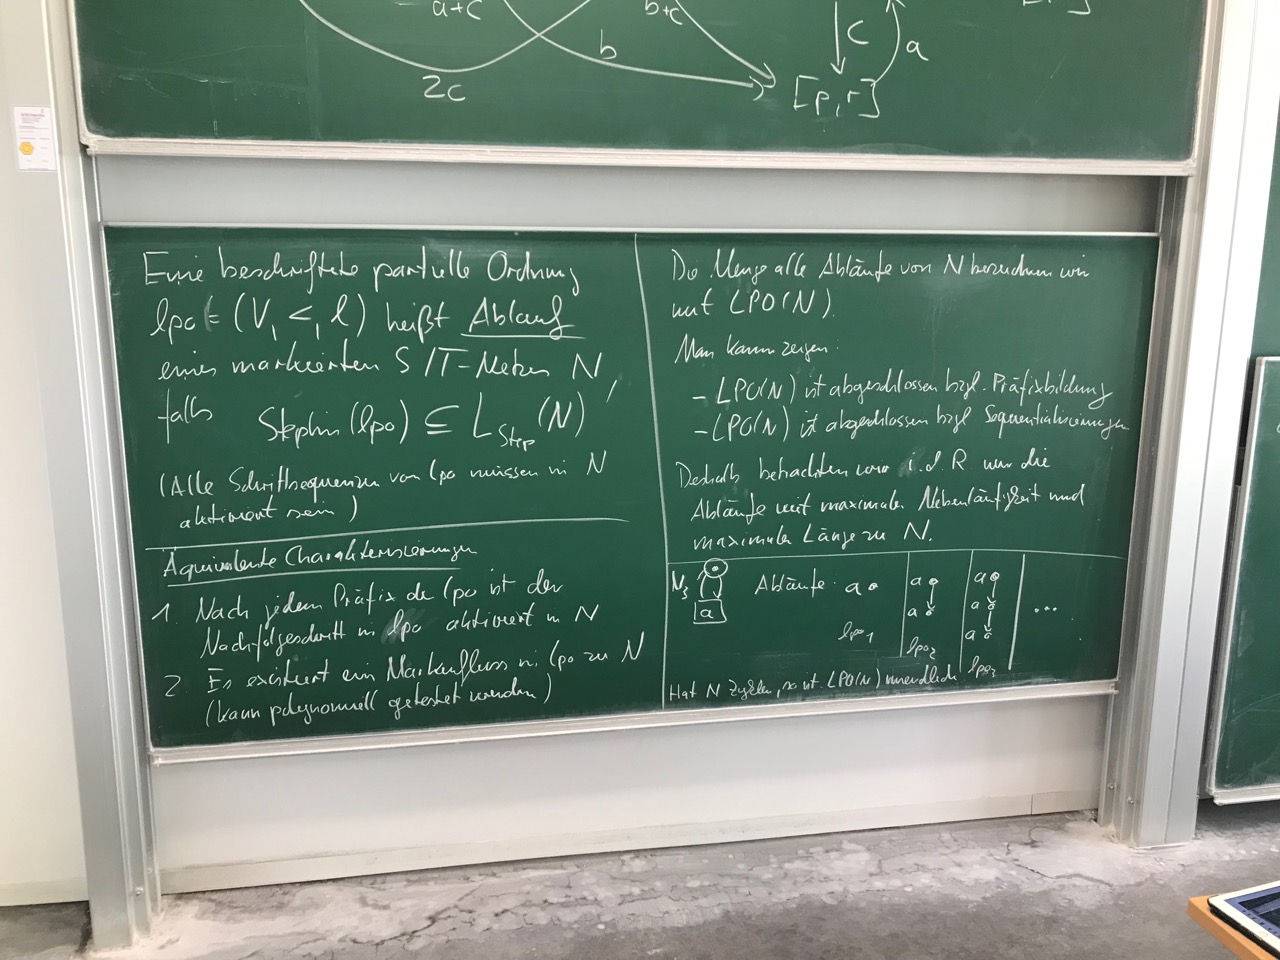 a+c
b+c
c
a
b
2c
[p,r]
Eine beschriftete partielle Ordnung
lpo = (V, <, l) heißt Ablauf
eines markierten S/T-Netzes N,
falls Steplin(lpo) ⊆ L_Step(N)
(Alle Schrittsequenzen von lpo müssen in N
aktiviert sein)
Äquivalente Charakterisierungen
1. Nach jedem Präfix de lpo ist der
Nachfolgeschritt in lpo aktiviert in N
2. Es existiert ein Markenfluss in lpo zu N
(kann polynomiell getestet werden)
Die Menge alle Abläufe von N bezeichnen wir
mit LPO(N).
Man kann zeigen:
- LPO(N) ist abgeschlossen bzgl. Präfixbildung
- LPO(N) ist abgeschlossen bzgl Sequentialisierungen
Deshalb betrachten wir i.d.R nur die
Abläufe mit maximaler Nebenläufigkeit und
maximaler Länge zu N.
N₃
a
Abläufe: a
lpo₁
a
a
lpo₂
a
a
a
lpo₃
...
Hat N Zyklen, so ist LPO(N) unendlich